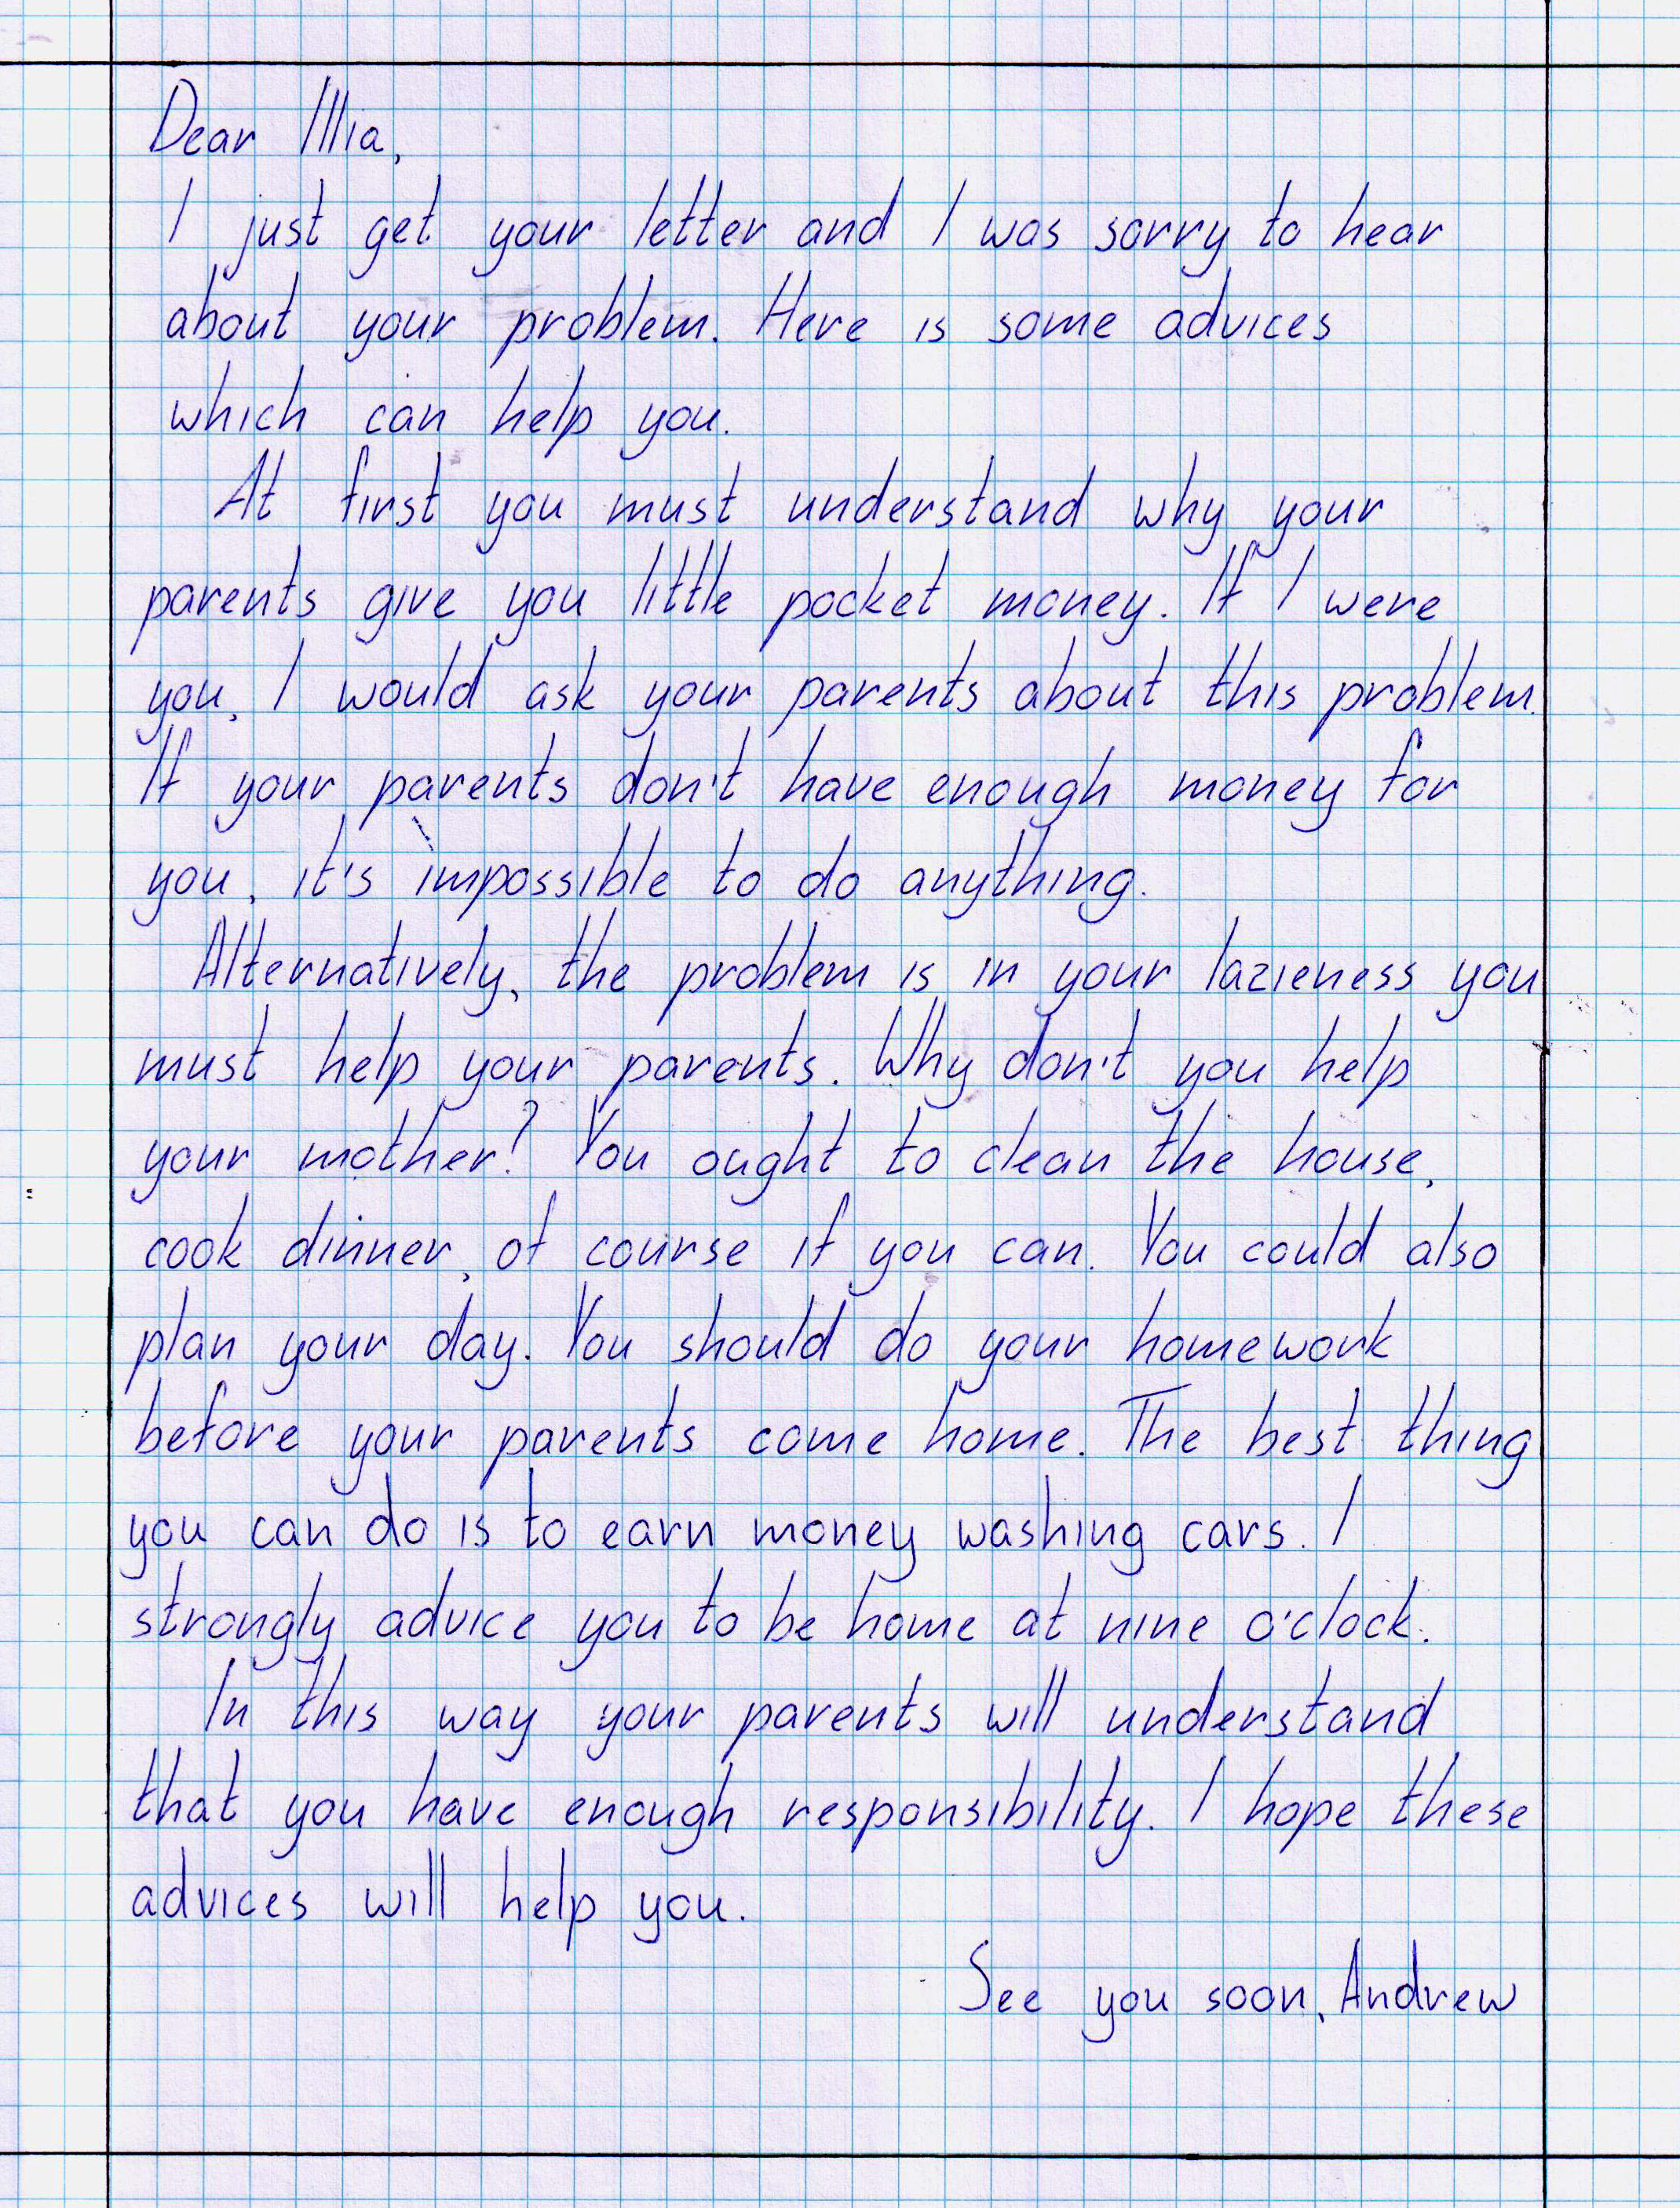 Dear Illia,
I just get your letter and I was sorry to hear
about your problem. Here is some advices
which can help you.
At first you must understand why your
parents give you little pocket money. If I were
you, I would ask your parents about this problem.
If your parents don't have enough money for
you, it's impossible to do anything.
Alternatively, the problem is in your lazieness you
must help your parents. Why don't you help
your mother? You ought to clean the house,
cook dinner, of course if you can. You could also
plan your day. You should do your homework
before your parents come home. The best thing
you can do is to earn money washing cars. I
strongly advice you to be home at nine o'clock.
In this way your parents will understand
that you have enough responsibility. I hope these
advices will help you.
See you soon, Andrew